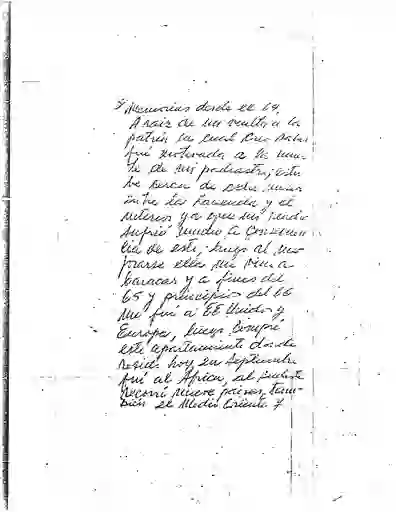 Memorias desde el 64,
A raiz de mi vuelta a la
patria la cual creo saber
fué motivada a la muer
te de mi padrastro, estu
be cerca de ocho meses
entre la hacienda y el
interior y a que mi madre
sufrió mucho a consecuen
cia de este, luego al me
jorarse ella me vine a
Caracas y a fines del
65 y principios del 66
me fui a EE Unidos y
Europa, luego compré
este apartamento donde
resido hoy, en Septiembre
fui al Africa, al sudeste
recorrí nueve paises, tam-
bien el Medio Oriente